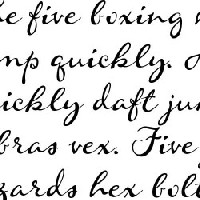 he five boxing w
mp quickly. 
uickly daft jum
bras vex. Five
zards hex bol